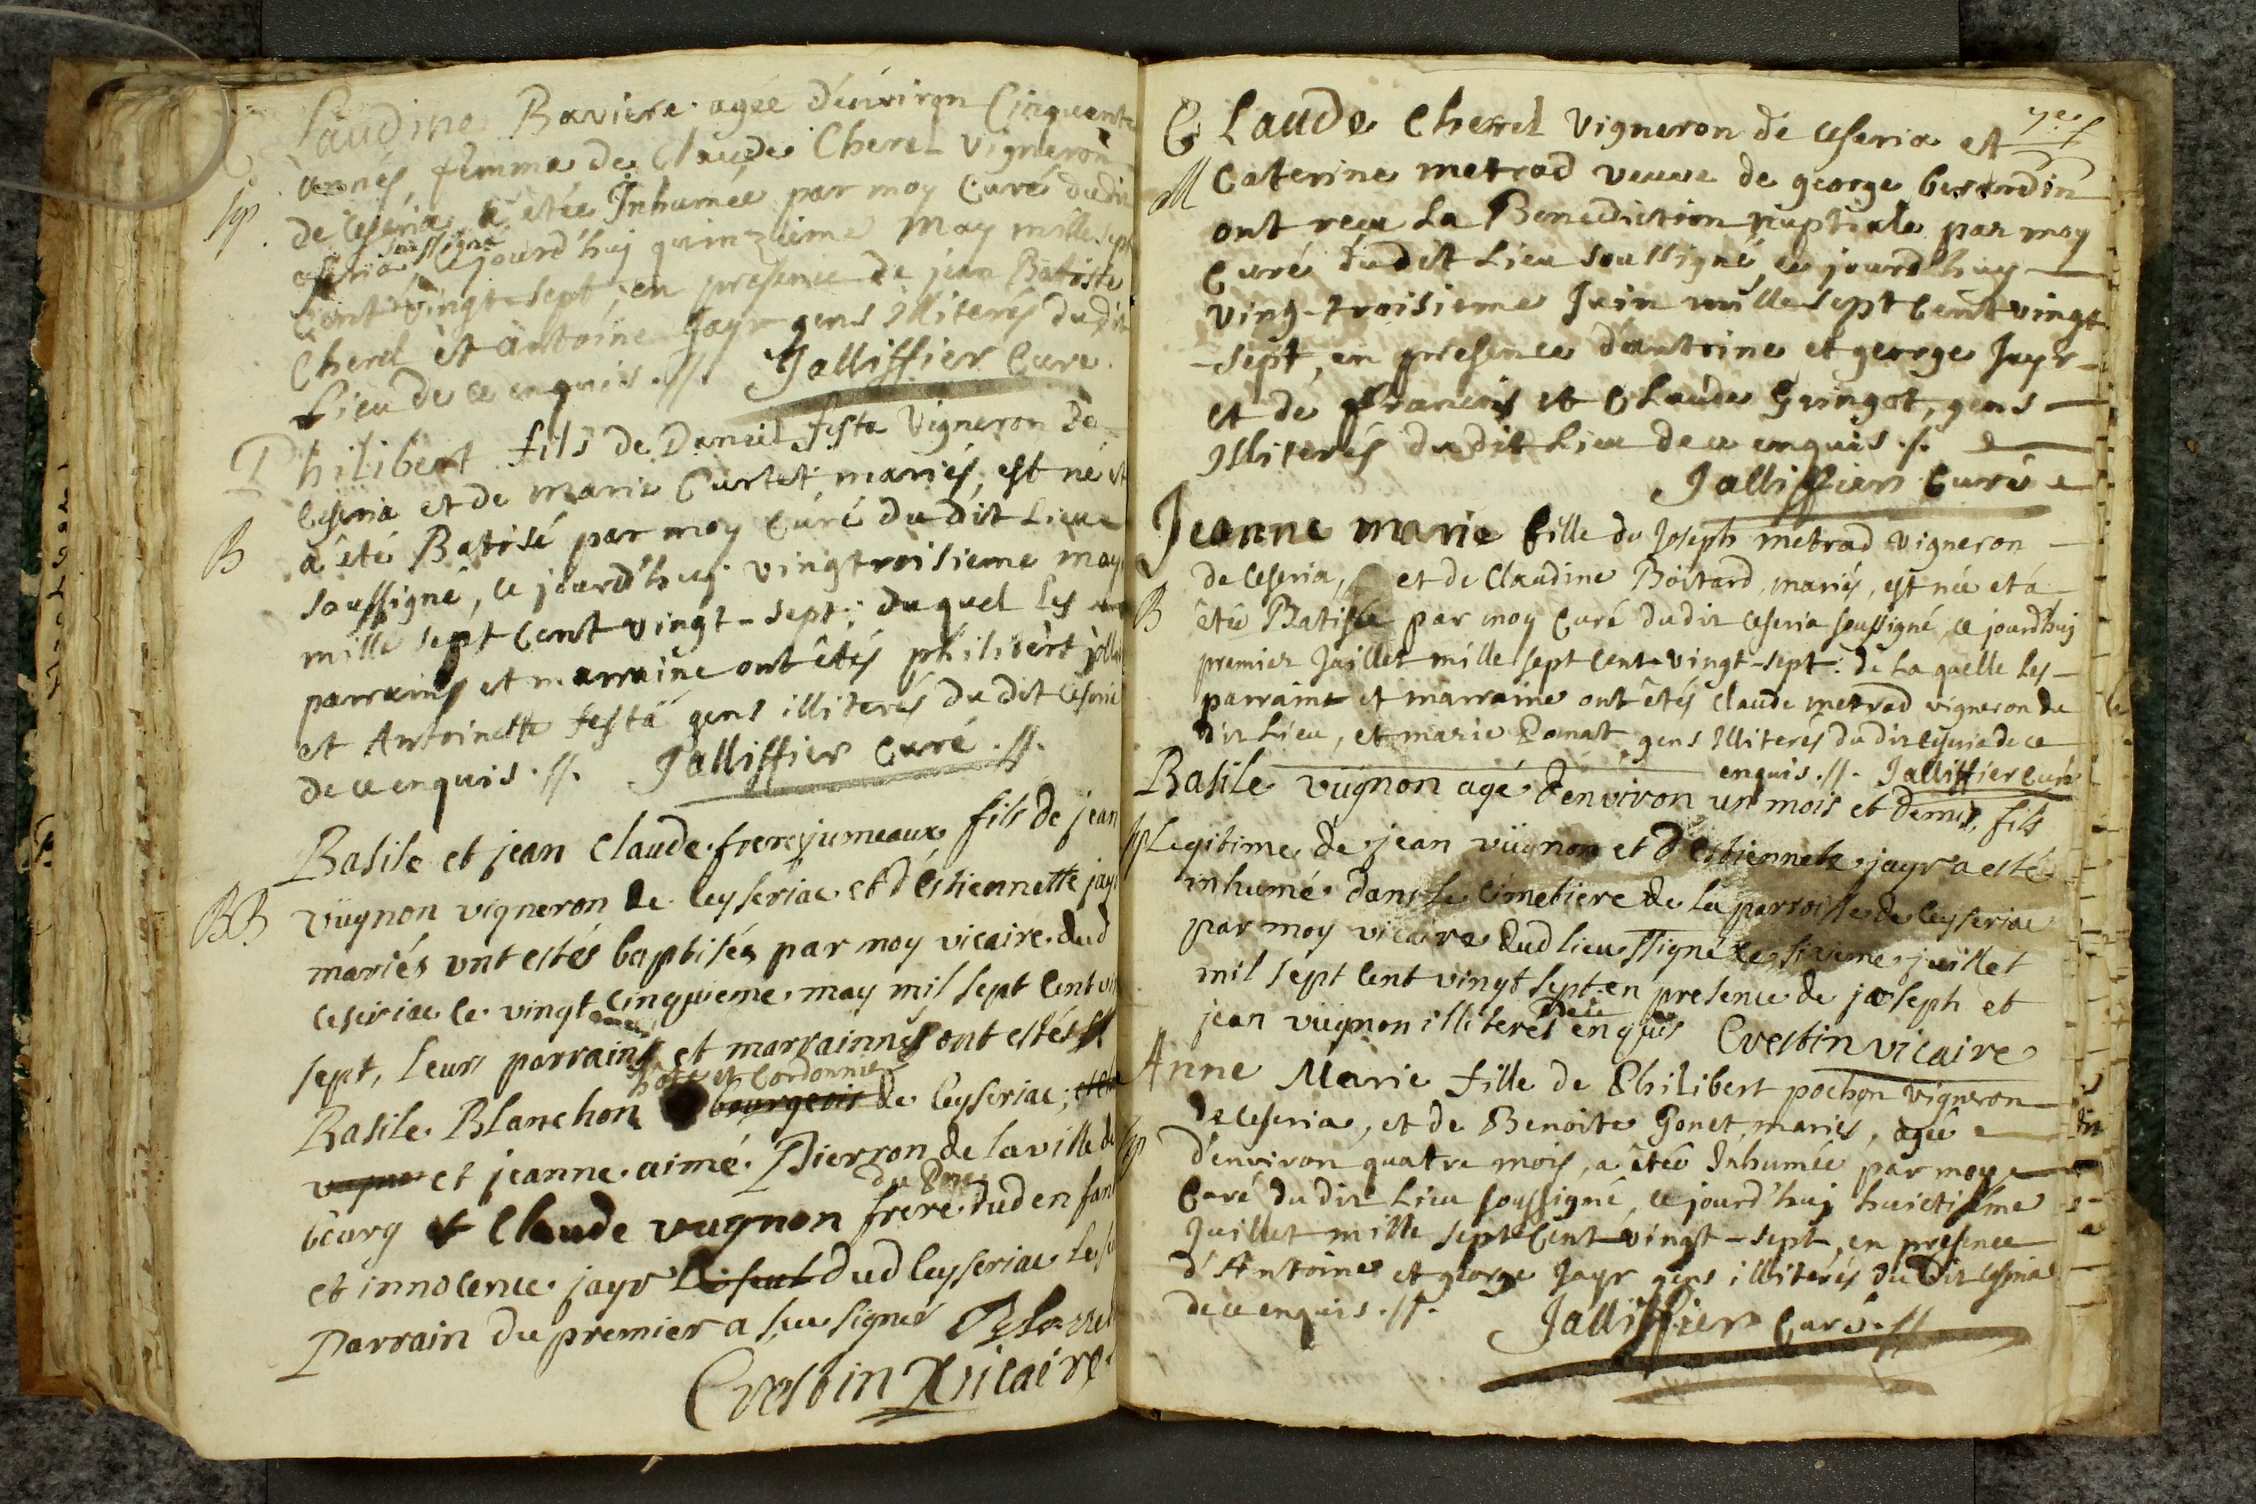 Claudine Baviere agée d'environ Cinquante
années, femme de Claude Cherel Vigneron
Sp. de Ceseria, a êtée Inhumée par moy Curé dudit
ceseria soussigné, ce jourd'huy quinzieme May mille sept
Cent vingt-sept, en presence de jean Batiste
Cherel et antoine Jayr gens Illiterés du dit
Lieu de ce enquis .//. Jalliffier Curé.
Philibert fils de Daniel festa Vigneron de
Ceseria et de marie Curtet mariés, est né et
B a êté Batisé par moy Curé du dit Lieu
soussigné, ce jourd'huy vingtroisieme may
mille sept Cent vingt-sept; duquel les
parrains et marraine ont êtés philibert
et Antoinette festa gens illiterés du dit Ceseria
de ce enquis .//. Jalliffier Curé .//.
Basile et jean Claude freres jumeaux fils de jean
BB vügnon vigneron de Ceyseriac et d'Estiennette jayr
mariés ont estés baptisés par moy vicaire dud
ceseriac le vingt cinquieme may mil sept cent vin
sept, leurs parrains et marrainnes ont estés
hote et Cordonnier
Basile Blanchon bourgeois de Ceyseriac; et
vugnon et jeanne aimé Pierron de la ville de
du 2me
bourg & Claude vugnon frere dud enfan
et innocence jayr dud Ceyseriac le
Parrain du premier a sceu signer Blanch
Crestin vicaire
Claude Cherel Vigneron de Ceseria et
M Caterine metrad veuve de george berardin
ont reçu la Benediction nuptiale par moy
Curé dudit Lieu soussigné, ce jourdhuy
ving-troisieme Juin mille sept Cent vingt
-sept, en presence d'antoine et george Jayr
et de francois et Claude Guingot, gens
Illiterés du dit Lieu de ce enquis ./.
Jalliffier Curé
Jeanne marie fille de Joseph metrad vigneron
de Ceseria, et de Claudine Boitard, mariés, est née et a
B êtée Batisée par moy Curé dudit Ceseria soussigné, ce jourd'huy
premier Juillet mille sept Cent-vingt-sept: de laquelle les
parraint et marraine ont êtés Claude metrad vigneron du
dit Lieu, et marie Donat gens Illiterés du dit Ceseria de ce
enquis .//. Jalliffier Curé
Basile vügnon agé d'environ un mois et demis, fils
Sp Legitime de jean vügnon et d'Estiennete jayr a esté
inhumé dans le cimetiere de la parroisse de Ceyseriac
par moy vicaire dud lieu ssigné le sixieme juillet
mil sept cent vingt sept en presence de joseph et
jean vügnon illiterés de ce enquis Crestin vicaire
Anne Marie fille de Philibert pochon vigneron
de Ceseria, et de Benoite Gonet, mariés, agée
Sp d'environ quatre mois, a êtée Inhumée par moy
Curé du dit Lieu soussigné, ce jourd'huy huictieme
Juillet mille sept Cent vingt-sept, en presence
d'Antoine et george Jayr gens illiterés du dit Ceseria
de ce enquis .//. Jalliffier Curé .//